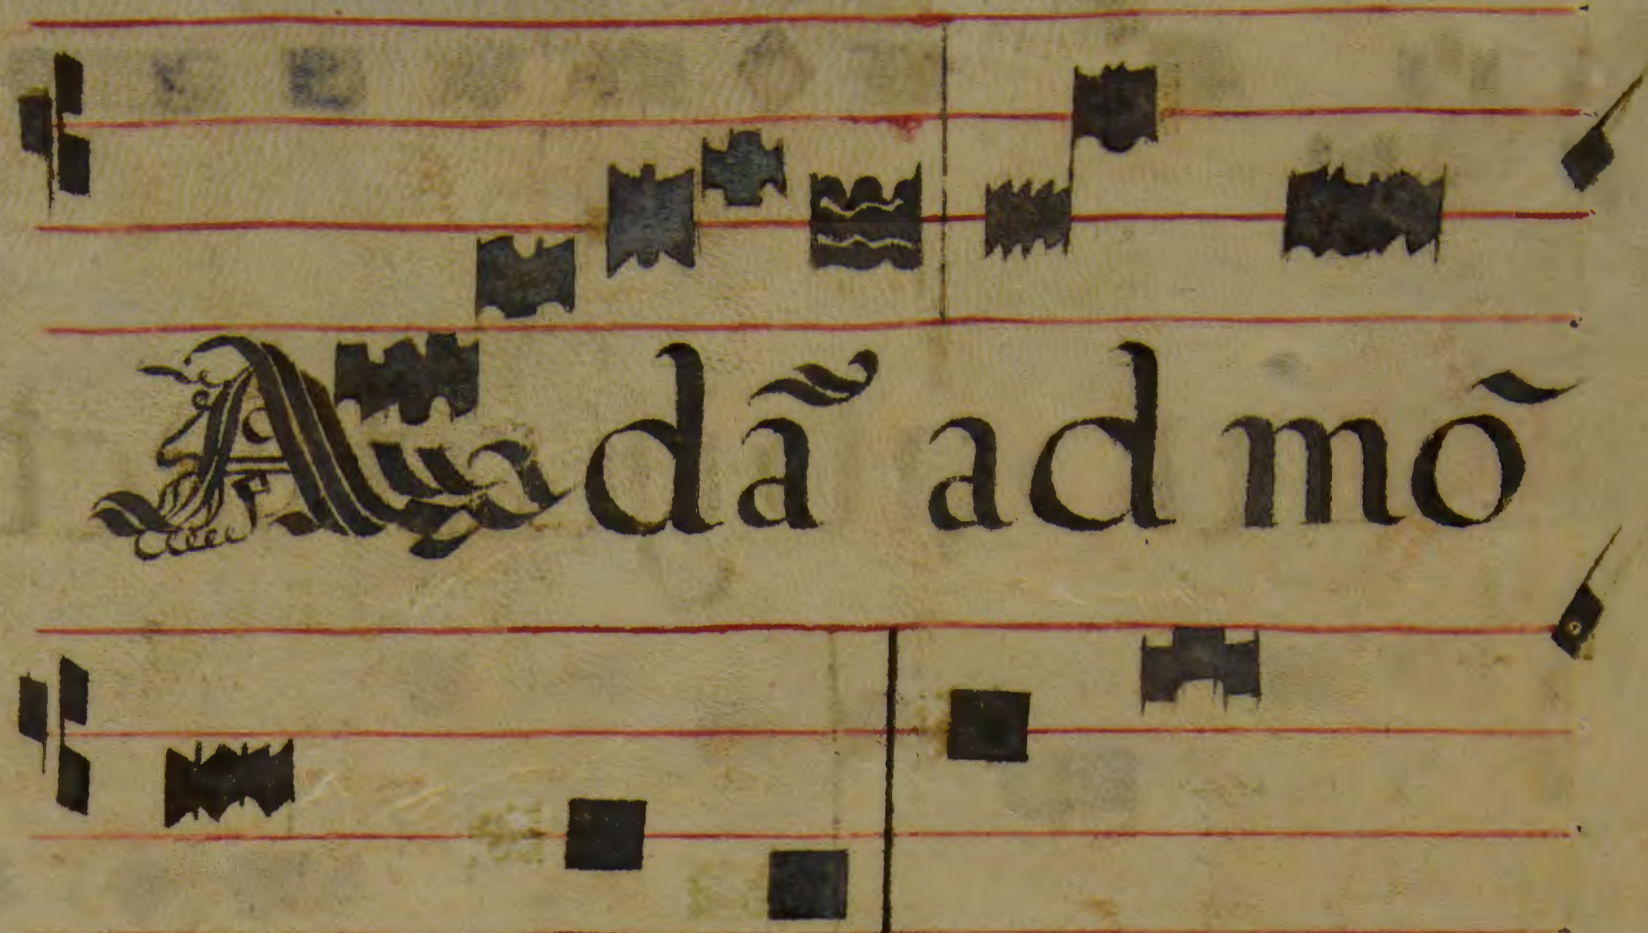 dã ad mõ